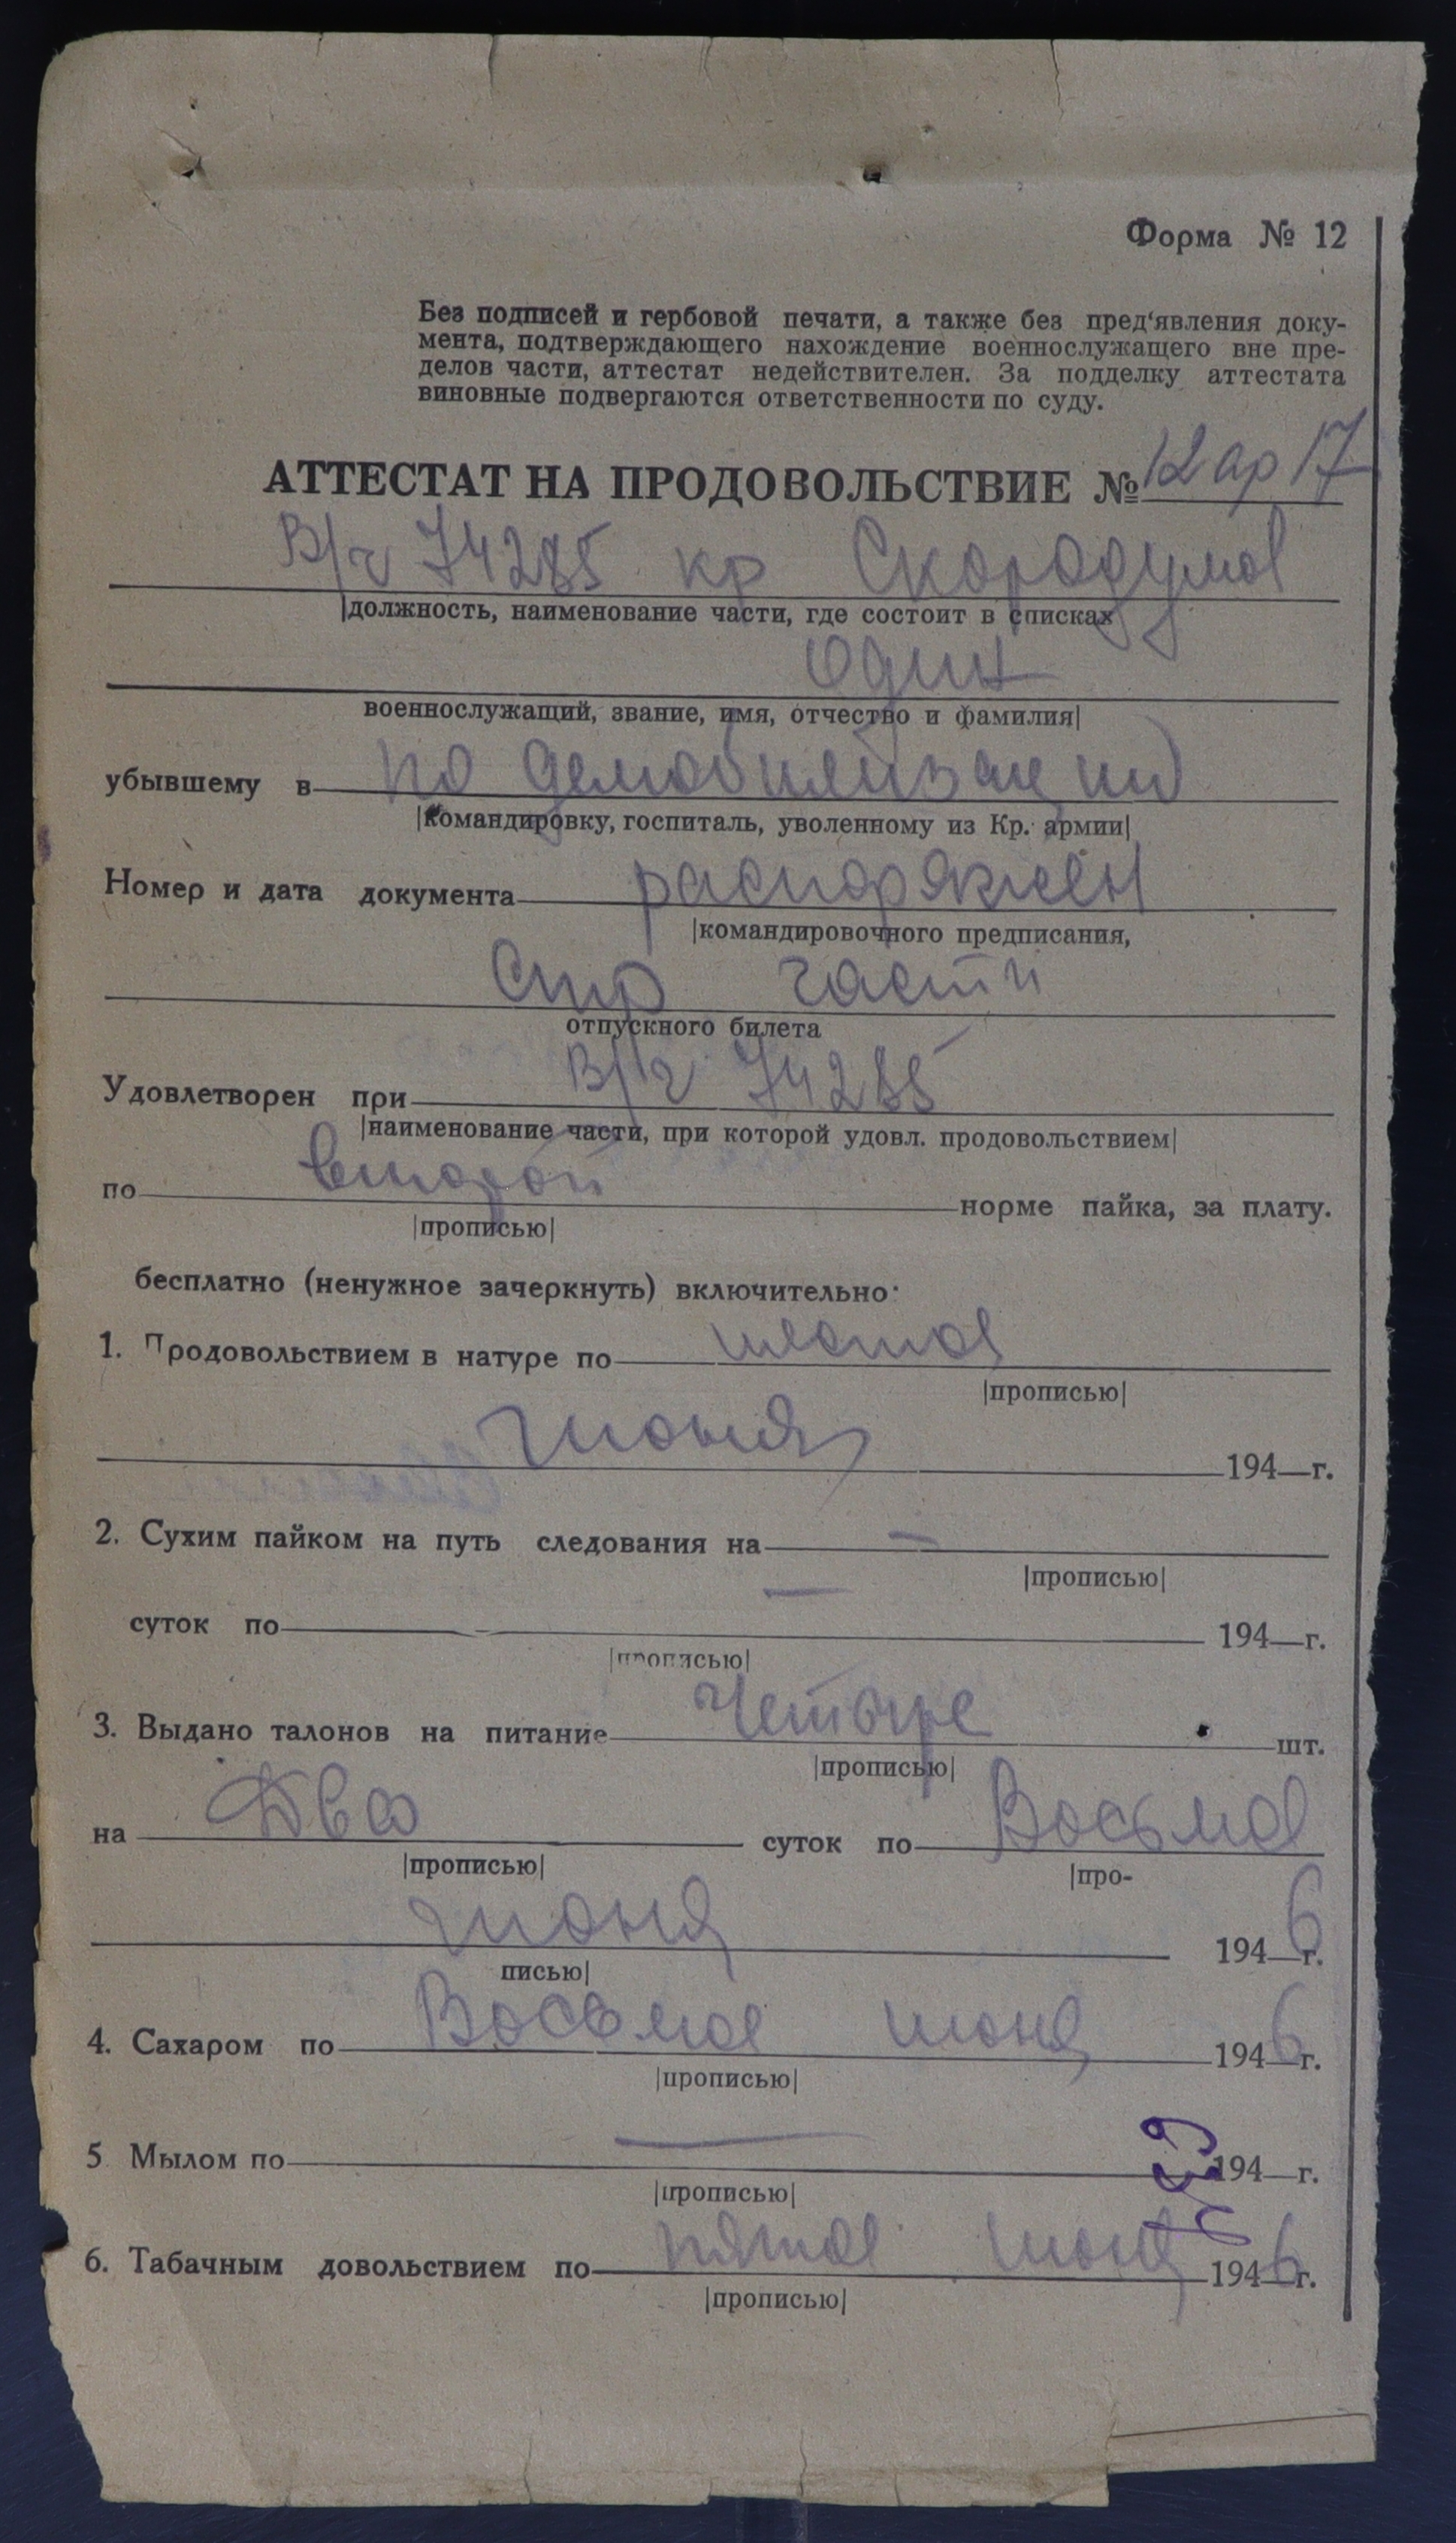 Форма № 12
Без подписей и гербовой печати, а также без пред'явления доку-
мента, подтверждающего нахождение военнослужащего вне пре-
делов части, аттестат недействителен. За подделку аттестата
виновные подвергаются ответственности по суду.
АТТЕСТАТ НА ПРОДОВОЛЬСТВИЕ № 12 ар 17
В/ч 74285 кр Скородумов
|должность, наименование части, где состоит в списках
один
военнослужащий, звание, имя, отчество и фамилия|
убывшему в по демобилизации
|командировку, госпиталь, уволенному из Кр. армии|
Номер и дата документа распоряжен
|командировочного предписания,
части
отпускного билета
Удовлетворен при В/ч 74285
|наименование части, при которой удовл. продовольствием|
по второй норме пайка, за плату.
|прописью|
бесплатно (ненужное зачеркнуть) включительно:
1. Продовольствием в натуре по шестое
|прописью|
июня 194 г.
2. Сухим пайком на путь следования на —
|прописью|
суток по — 194 г.
|прописью|
3. Выдано талонов на питание Четыре шт.
|прописью|
на Два суток по Восьмое
|прописью| |про-
июня 1946 г.
писью|
4. Сахаром по Восьмое июня 1946 г.
|прописью|
5 Мылом по — 194 г.
|прописью|
6. Табачным довольствием по пятое июня 1946 г.
|прописью|